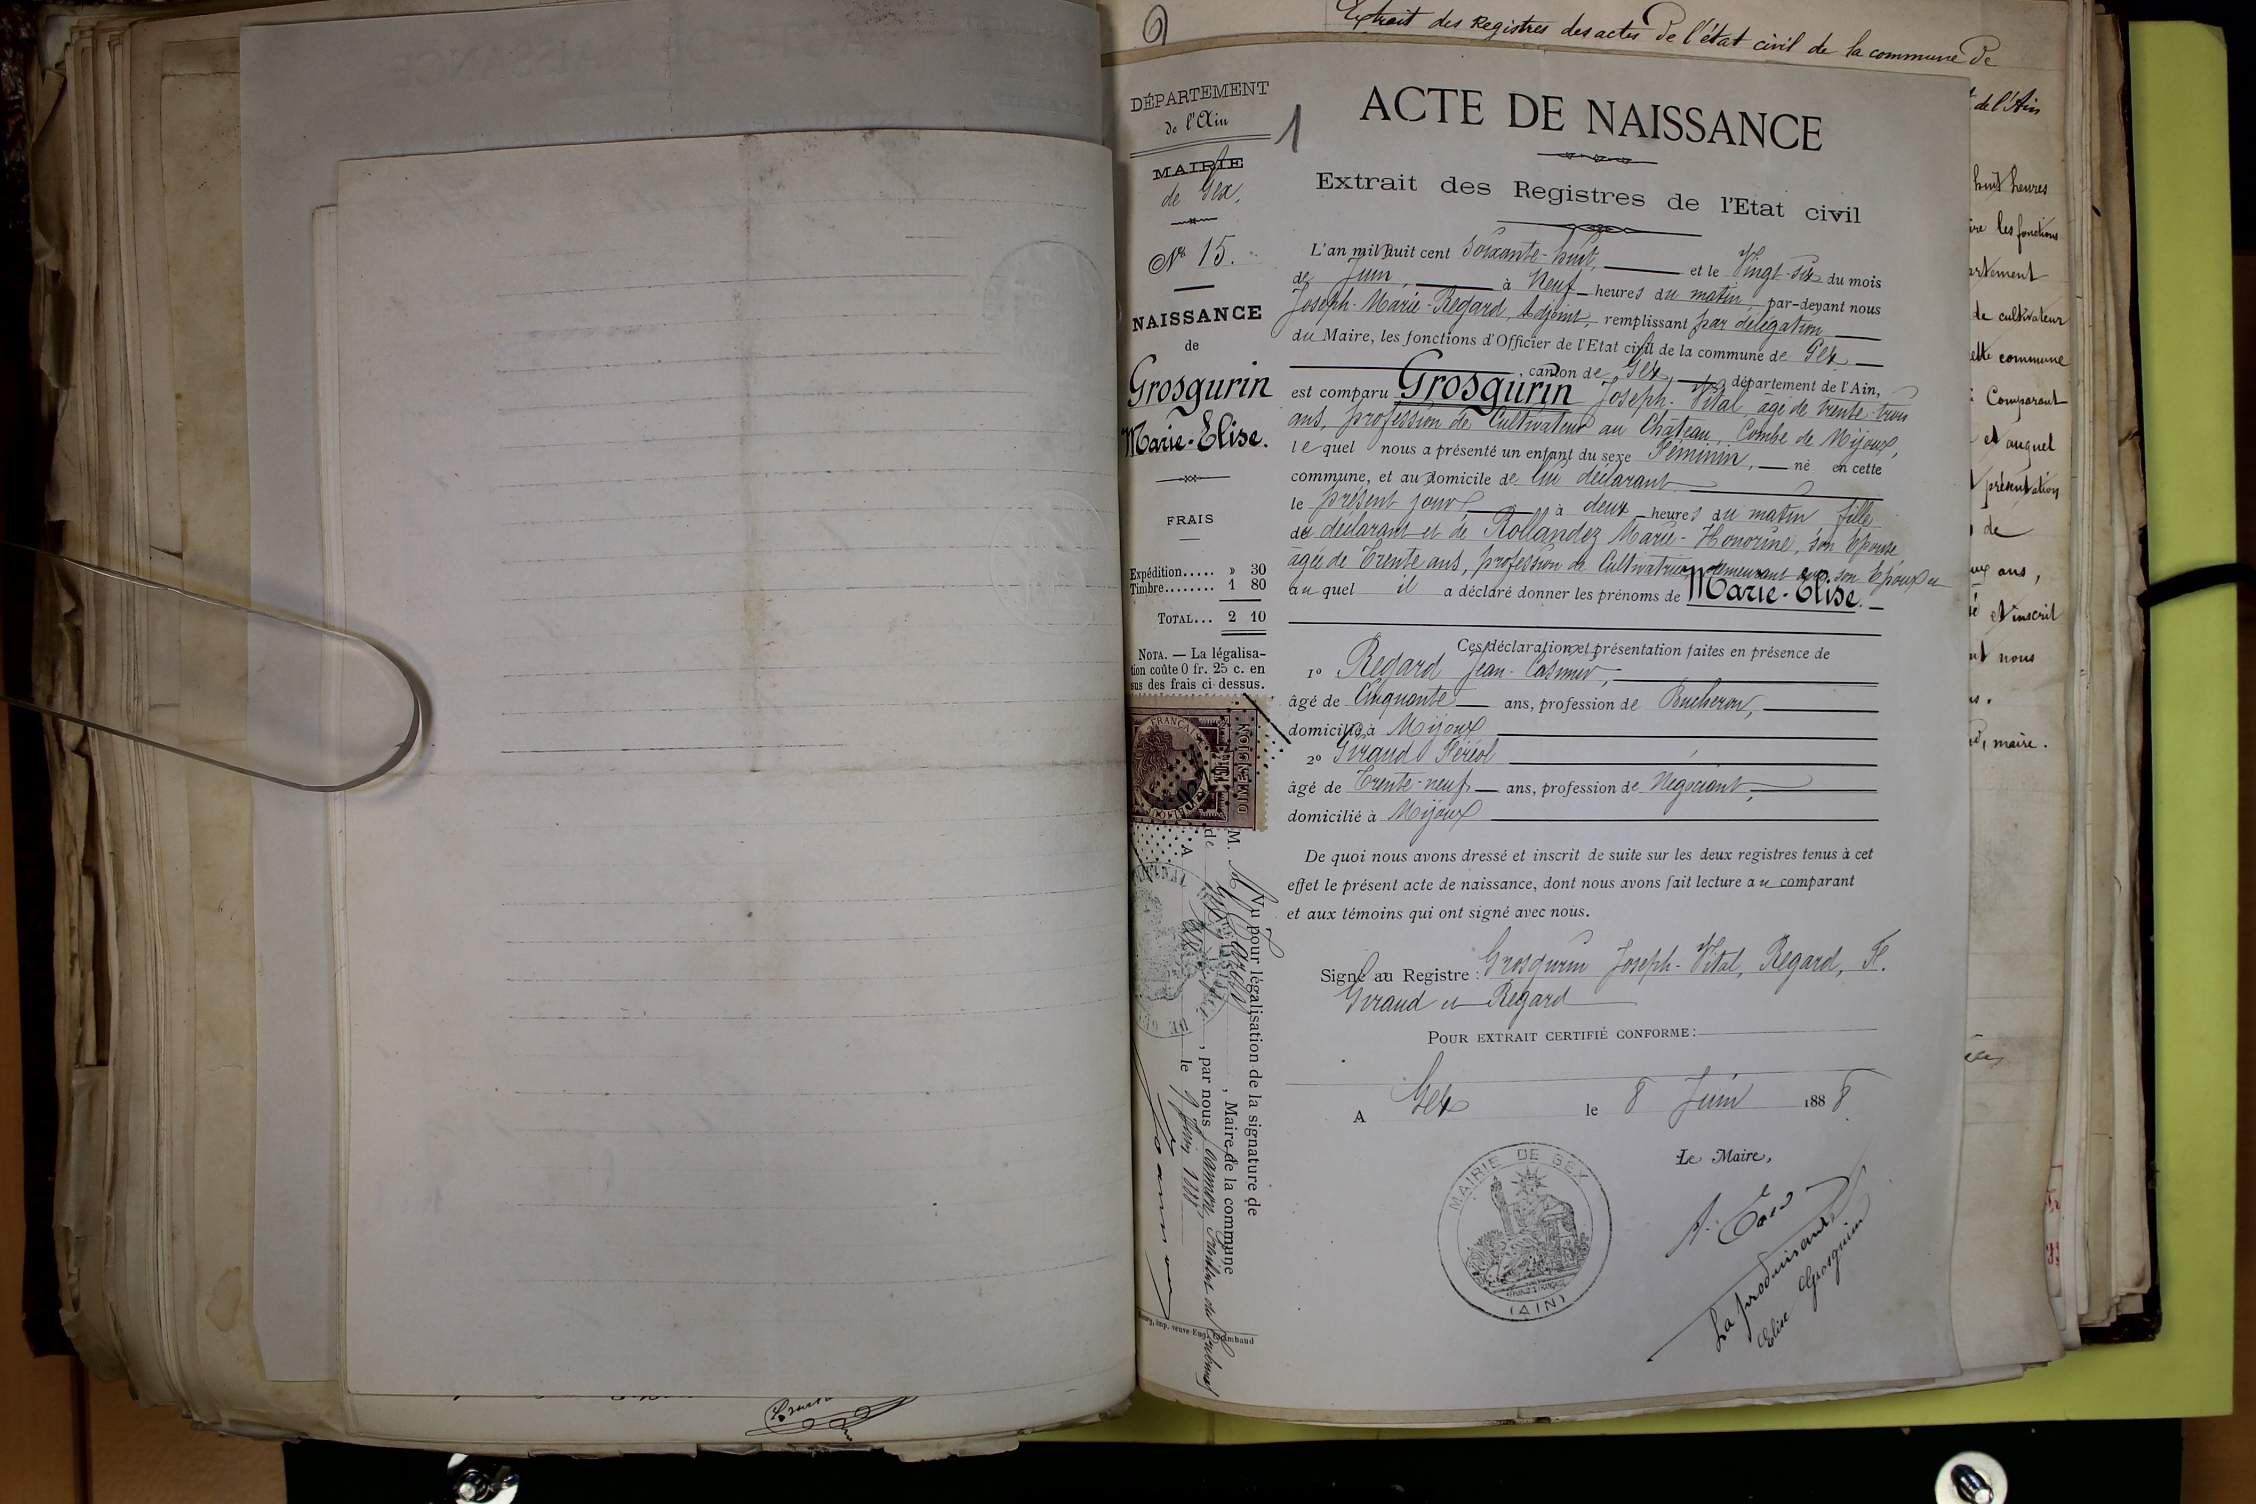 Extrait des Registres des actes de l'état civil de la commune de
DÉPARTEMENT
de l'Ain
MAIRIE
de Gex,
N° 15.
NAISSANCE
de
Grosgurin
Marie-Elise.
FRAIS
Expédition..... » 30
Timbre........ 1 80
TOTAL... 2 10
NOTA. — La légalisa-
tion coûte 0 fr. 25 c. en
sus des frais ci-dessus.
1
ACTE DE NAISSANCE
Extrait des Registres de l'Etat civil
L'an mil huit cent soixante-huit, et le Vingt-six du mois
de Juin, à Neuf heures du matin, par-devant nous
Joseph-Marie-Regard, Adjoint, remplissant par délégation
du Maire, les fonctions d'Officier de l'Etat civil de la commune de Gex
, canton de Gex, département de l'Ain,
est comparu Grosgurin Joseph-Vital, âgé de trente-trois
ans, profession de Cultivateur au Chateau, Combe de Mijoux,
lequel nous a présenté un enfant du sexe Féminin, né en cette
commune, et au domicile de lui déclarant
le présent jour à deux heures du matin fille
du déclarant et de Rollandez Marie-Honorine, son Epouse
âgée de Trente ans, profession de Cultivatrice demeurant avec son Epoux et
auquel il a déclaré donner les prénoms de Marie-Elise.
Ces déclaration et présentation faites en présence de
1° Regard Jean-Casimir,
âgé de Cinquante ans, profession de Bucheron,
domicilié à Mijoux
2° Giraud Féréol
âgé de Trente-neuf ans, profession de Négociant,
domicilié à Mijoux
De quoi nous avons dressé et inscrit de suite sur les deux registres tenus à cet
effet le présent acte de naissance, dont nous avons fait lecture au comparant
et aux témoins qui ont signé avec nous.
Signé au Registre : Grosgurin Joseph-Vital, Regard, F.
Giraud et Regard
POUR EXTRAIT CERTIFIÉ CONFORME :
A Gex le 8 Juin 1888
Le Maire,
La produisante
Elise Grosgurin
MAIRIE DE GEX
(AIN)
Vu pour légalisation de la signature de
M. , Maire de la commune
de Gex, par nous
A Gex le 9 Juin 1888
de l'Ain
huit heures
ire les fonctions
artement
de cultivateur
ette commune
Comparant
et auquel
présentation
de
ans,
et inscrit
nt nous
maire.